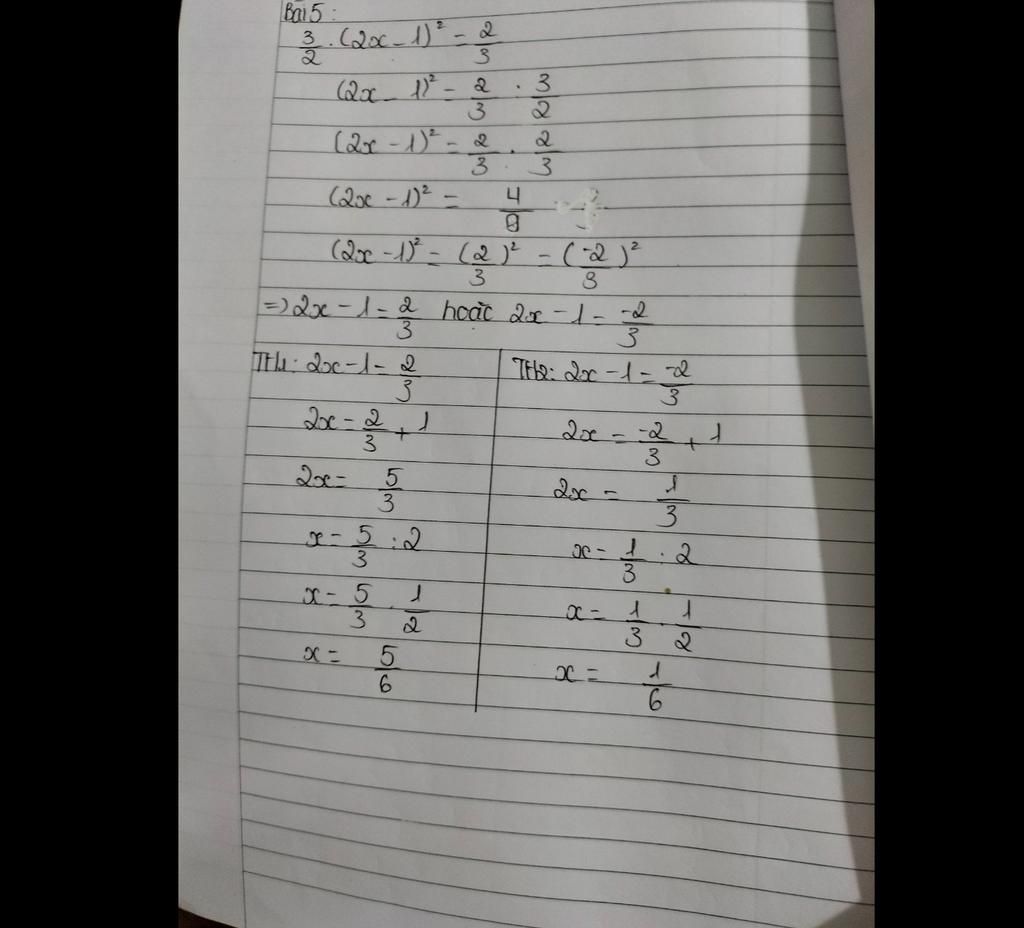 Bài 5:
3/2 . (2x - 1)² = 2/3
(2x - 1)² = 2/3 . 3/2
(2x - 1)² = 2/3 . 2/3
(2x - 1)² = 4/9
(2x - 1)² = (2/3)² = (-2/3)²
=> 2x - 1 = 2/3 hoặc 2x - 1 = -2/3
TH1: 2x - 1 = 2/3
2x = 2/3 + 1
2x = 5/3
x = 5/3 : 2
x = 5/3 . 1/2
x = 5/6
TH2: 2x - 1 = -2/3
2x = -2/3 + 1
2x = 1/3
x = 1/3 : 2
x = 1/3 . 1/2
x = 1/6